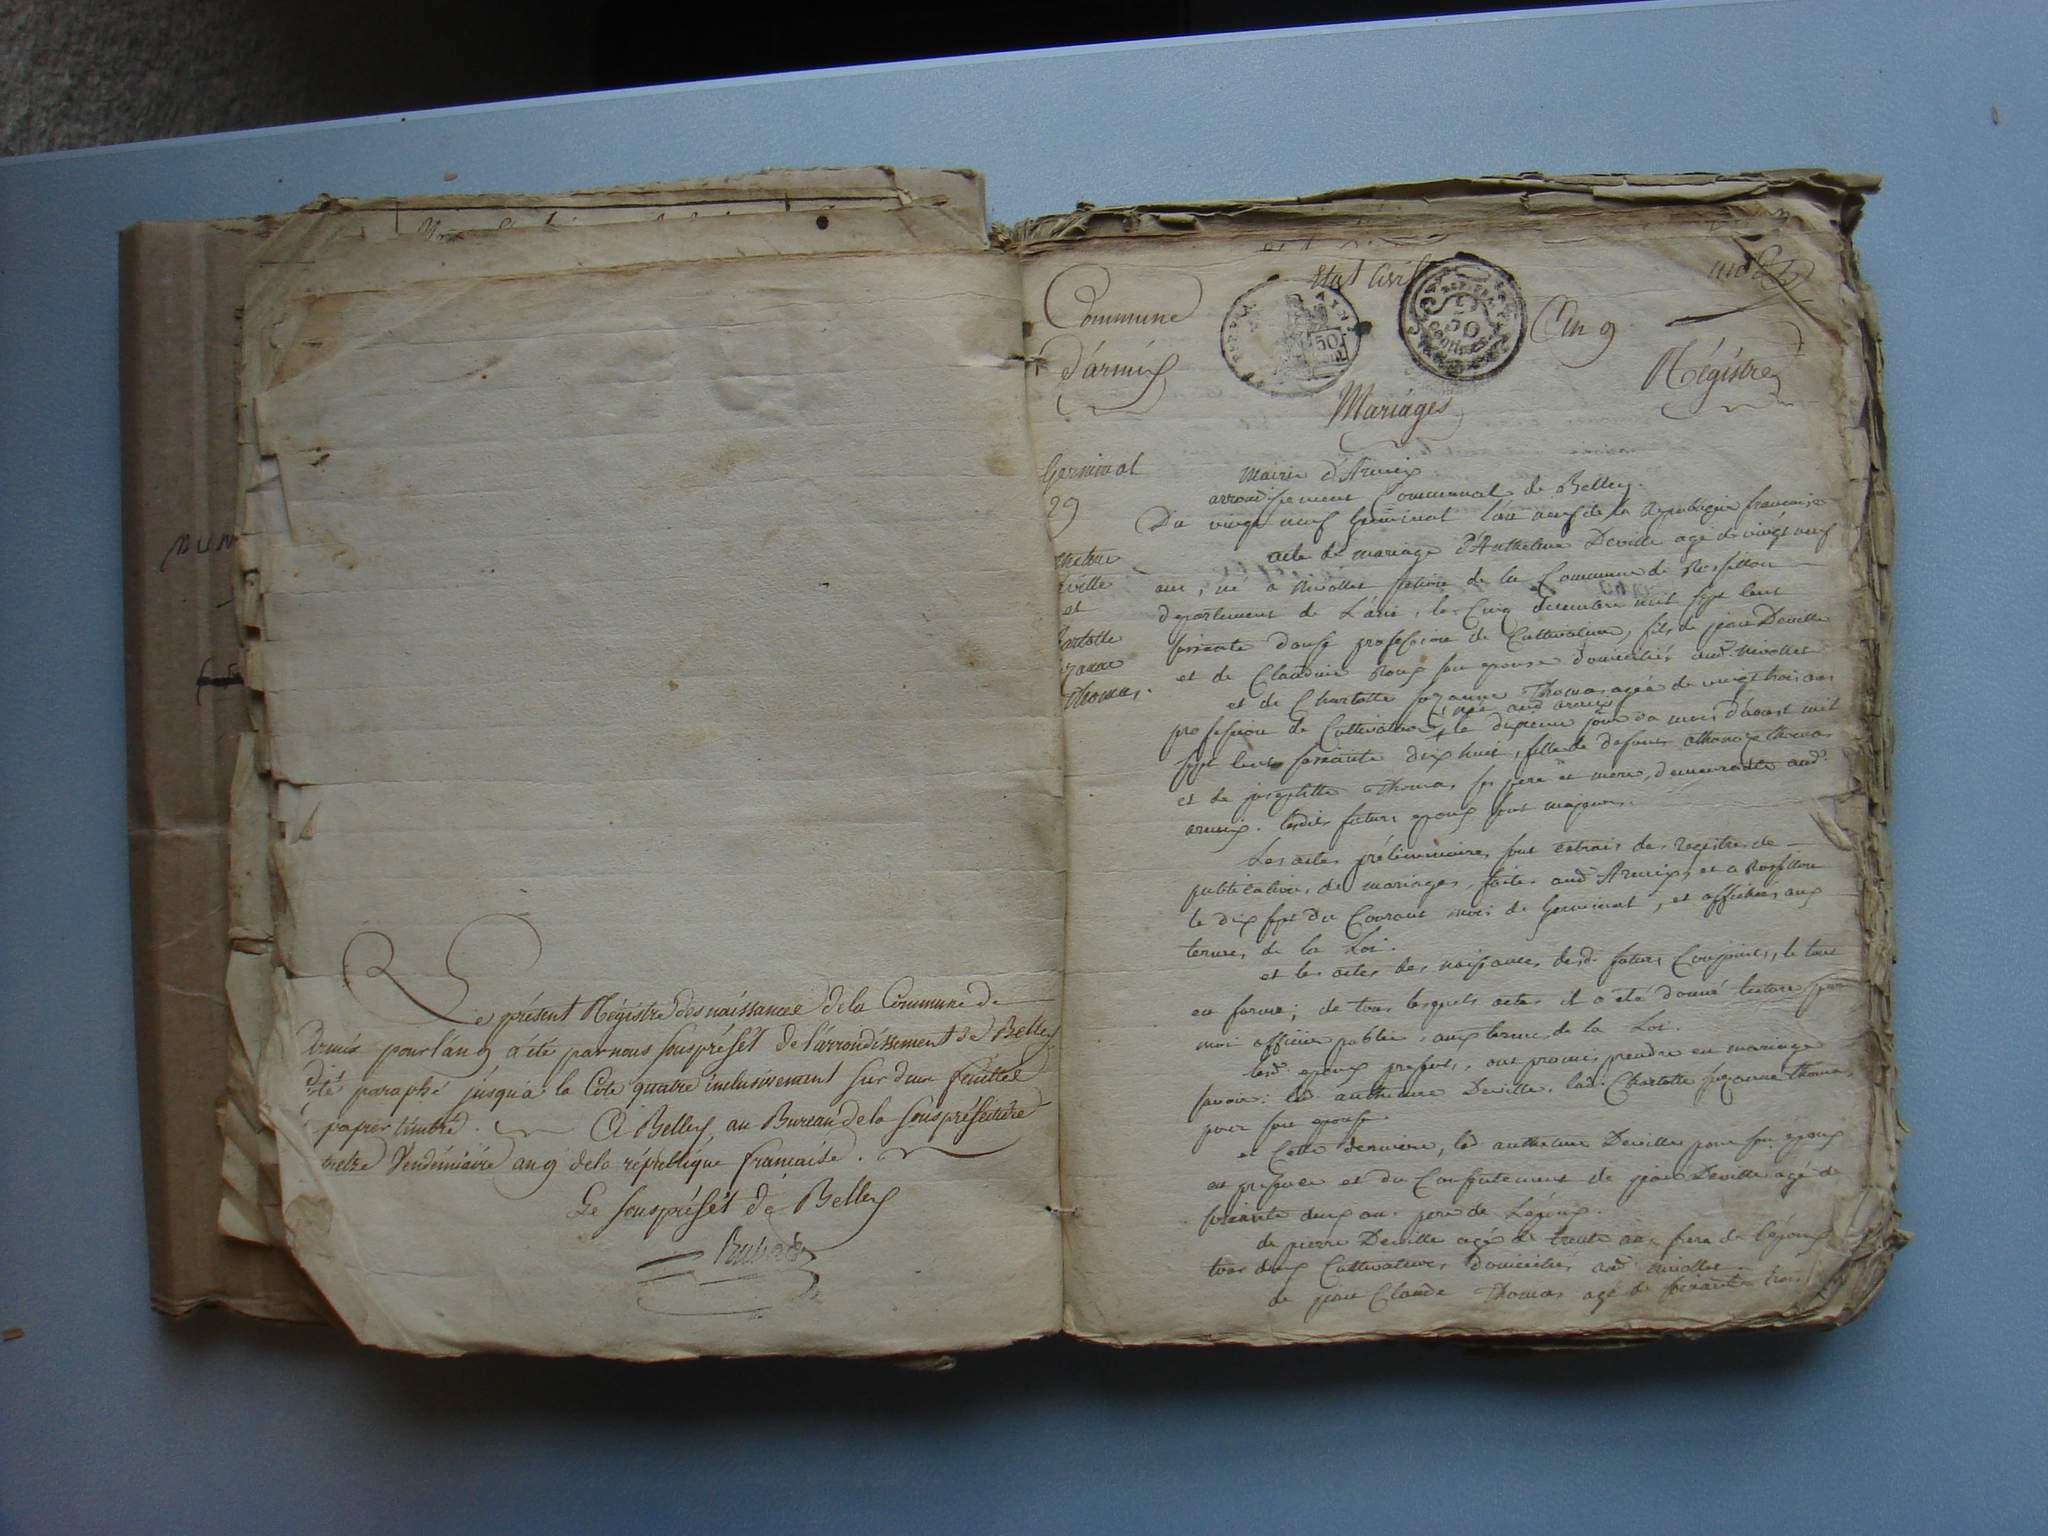 Le présent Régistre des naissances de la Commune de
Armix pour l'an 9 a été par nous sous préfet de l'arrondissement de Belley
été paraphé jusqu'à la Cote quatre inclusivement sur deux feuilles
papier timbré. A Belley, au Bureau de la sous préfecture
treize Vendémiaire an 9 de la république française.
Le sous préfet de Belley
Etat Civil
Commune
d'armix
50
50
Centimes
An 9
Régistre
Mariages
Germinal
29
Mairie d'Armix
arrondissement Communal de Belley.
Du vingt neuf Germinal l'an neuf de la Republique francaise
acte de mariage d'Anthelme Deville agé de vingt neuf
ans, né a Nivollet section de la Commune de Rossillon
departement de L'ain, le Cinq decembre mil sept cent
soixante douse profession de Cultivateur, fils de jean Deville
et de Claudine Roux son epouse domiciliés aud. Nivollet
et
Thomas.
et de Charlotte suzanne Thomas agée de vingt trois ans
née aud armix
profession de Cultivatrice, le dixieme jour du mois d'aoust mil
sept cent soixante dix huit, fille de defunt Thomas
et de Thomas, ses pere et mere, demeurante aud.
armix. lesdits futurs epoux sont majeurs.
Les actes préliminaires sont extrais des registres de
publications de mariages, faites aud Armix, et a Rossillon
le dix sept du Courant mois de Germinal, et affichées aux
termes de la Loi.
et les actes des naissances desd. futurs Conjoints, le tout
en forme; de tous lesquels actes il a été donné lecture par
moi officier public, aux termes de la Loi.
lesd. epoux presents, ont promis prendre en mariage
savoir: led. anthelme Deville, lad. Charlotte suzanne Thomas
pour son epouse
et Cette derniere, led anthelme Deville pour son epoux
en presence et du Consentement de jean Deville agé de
soixante deux ans pere de L'epoux.
de pierre Deville agé de trente ans frere de l'epoux
tous deux Cultivateurs domiciliés aud Nivollet.
de jean Claude Thomas agé de soixante trois